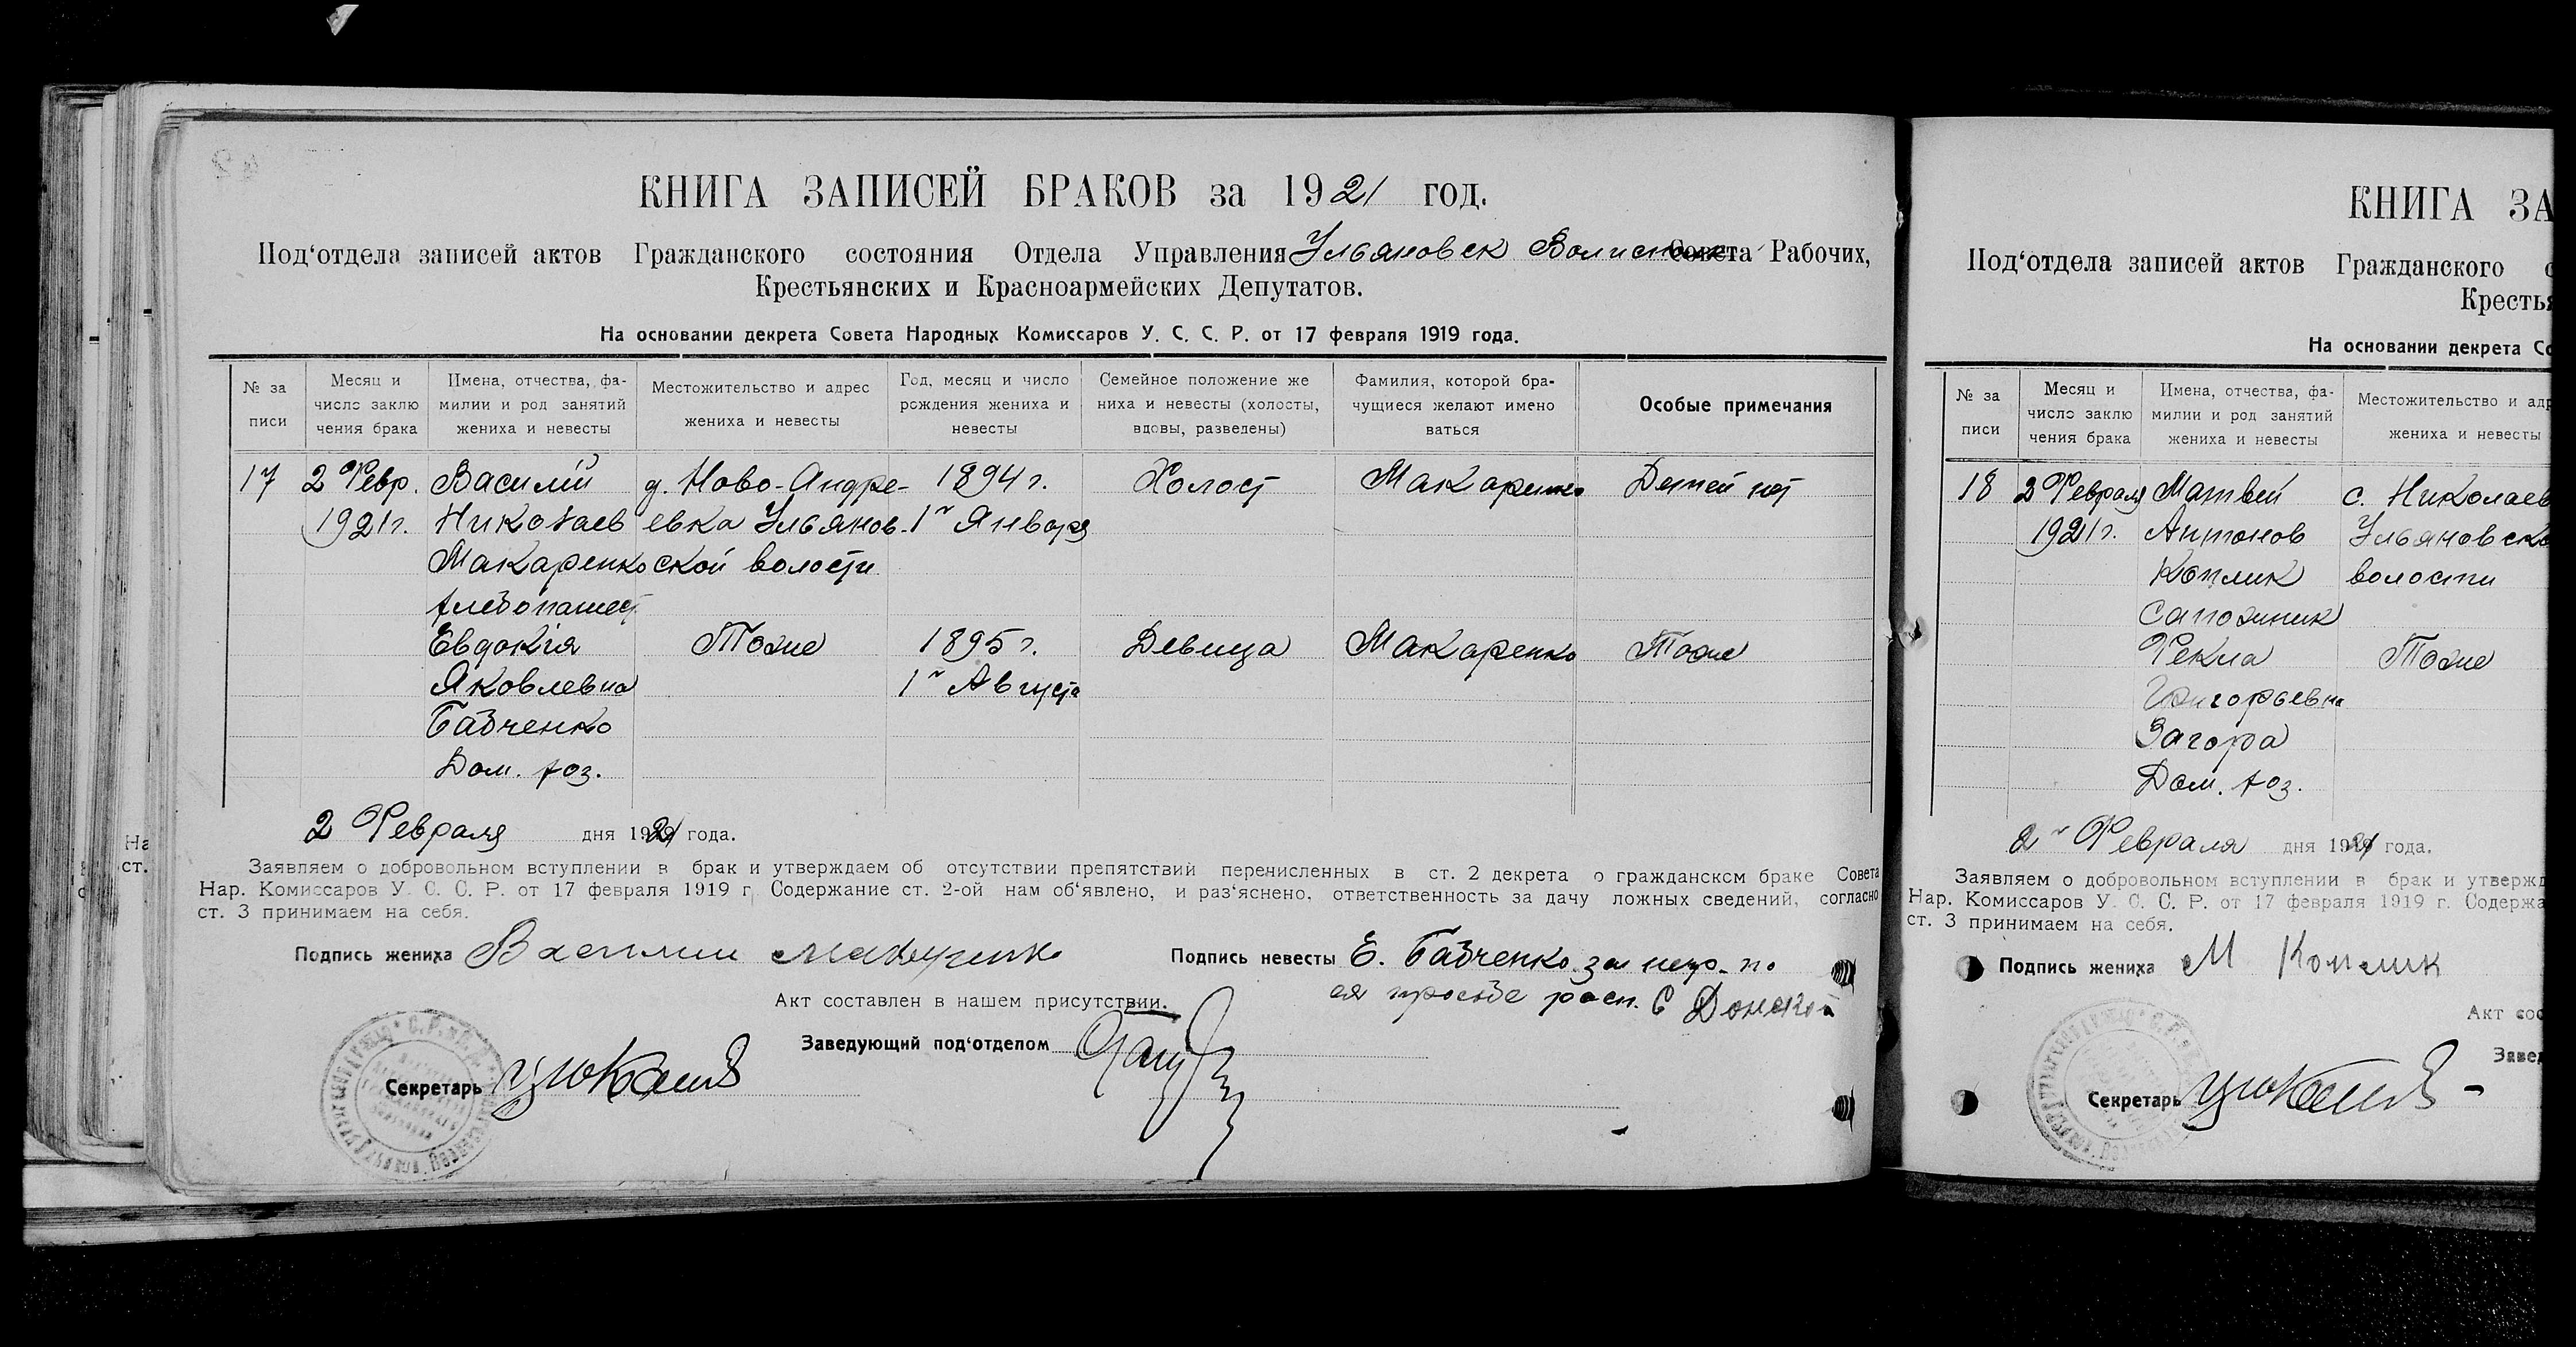 КНИГА ЗАПИСЕЙ БРАКОВ за 1921 год.
Под‘отдела записей актов Гражданского состояния Отдела Управления Ульяновск Совета Рабочих,
Крестьянских и Красноармейских Депутатов.
На основании декрета Совета Народных Комиссаров У. С. С. Р. от 17 февраля 1919 года.
№ за
писи
Месяц и
число заклю
чения брака
Имена, отчества, фа-
милии и род занятий
жениха и невесты
Местожительство и адрес
жениха и невесты
Год, месяц и число
рождения жениха и
невесты
Семейное положение же
ниха и невесты (холосты,
вдовы, разведены)
Фамилия, которой бра-
чущиеся желают имено
ваться
Особые примечания
17 2 Февр. Василій д. Ново-Андре- 1894 г. Холост Макаренко Детей нет
1921 г. Николаев евка Ульянов- 1го Января
Макаренко ской волости
хлебопашец
Евдокія Тоже 1895 г. Девица Макаренко Тоже
Яковлевна 1го Августа
Бабченко
Дом. хоз.
2 Февраля дня 1921 года.
Заявляем о добровольном вступлении в брак и утверждаем об отсутствии препятствий перечисленных в ст. 2 декрета о гражданском браке Совета
Нар. Комиссаров У. С. С. Р. от 17 февраля 1919 г. Содержание ст. 2-ой нам об‘явлено, и раз‘яснено, ответственность за дачу ложных сведений, согласно
ст. 3 принимаем на себя.
Подпись жениха Василий Макаренко
Подпись невесты Е. Бабченко за негр. по
ея просьбе расп. С Донской
Акт составлен в нашем присутствии.
Заведующий под‘отделом
Секретарь
КНИГА ЗА
Под‘отдела записей актов Гражданского с
Крестья
На основании декрета Со
№ за
писи
Месяц и
число заклю
чения брака
Имена, отчества, фа-
милии и род занятий
жениха и невесты
Местожительство и адр
жениха и невесты
18 2 Февраля Матвей с. Николаев
1921 г. Антонов Ульяновско
Коплик волости
сапожник
Фекла Тоже
Григорьевна
Загора
Дом. хоз.
2го Февраля дня 1921 года.
Заявляем о добровольном вступлении в брак и утвержд
Нар. Комиссаров У. С. С. Р. от 17 февраля 1919 г. Содержа
ст. 3 принимаем на себя.
Подпись жениха М Коплик
Акт сос
Завед
Секретарь